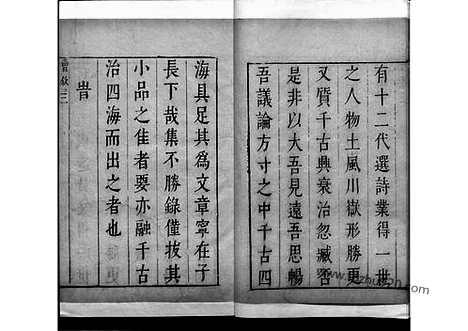 有十二代選詩業得一世
之人物土風川嶽形勝更
又質千古興衰治忽臧否
是非以大吾見遠吾思暢
吾議論方寸之中千古四
海具足其為文章寧在子
長下哉集不勝錄僅拔其
小品之佳者要亦融千古
治四海而出之者也